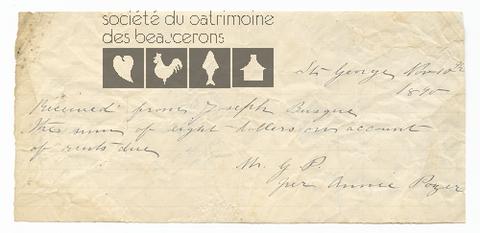 société du patrimoine
des beaucerons
St. George, Nov 10th
1890
Received from Joseph Busque
the sum of eight dollars on account
of rents due
Mr. G P.
per Annie Pozer